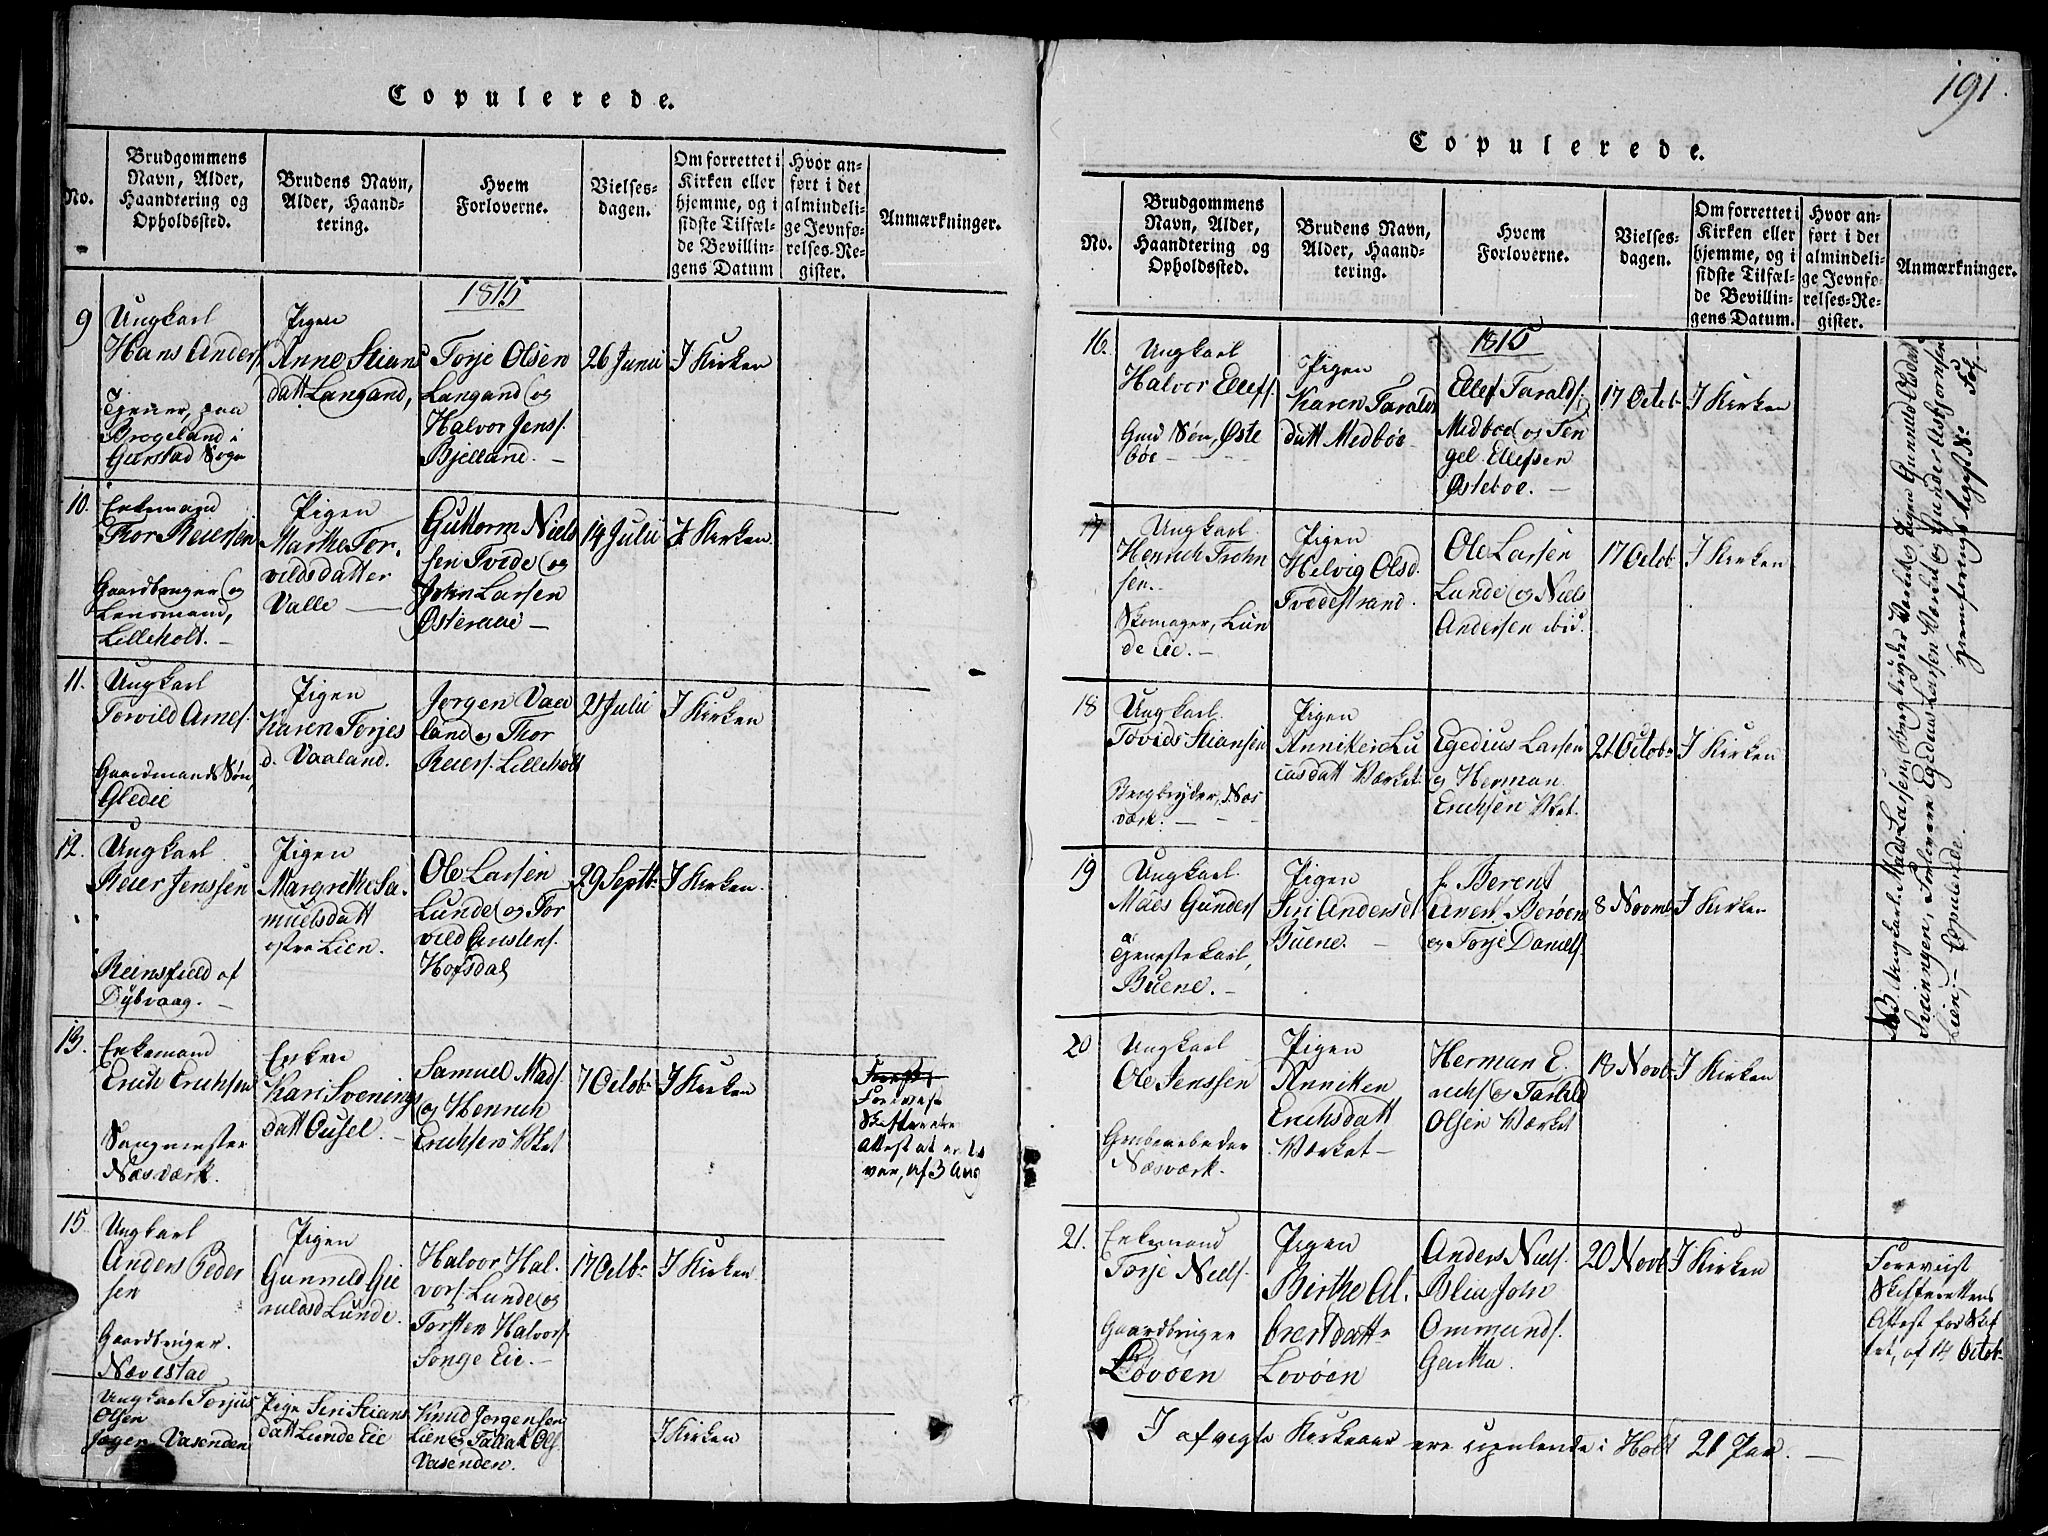 Copulerede.
No.
Brudgommens
Navn, Alder,
Haandtering og
Opholdssted.
Brudens Navn,
Alder, Haand-
tering.
Hvem
Forloverne.
Vielses-
dagen.
Om forrettet i
Kirken eller
hjemme, og i
sidste Tilfæl-
de Bevillin-
gens Datum
Hvor an-
ført i det
almindeli-
ge Jevnfø-
relses-Re-
gister.
Anmærkninger.
1815
9
Ungkarl
Hans Anders.
Tjener, paa
Brogeland i
Gierstad Sogn
Pigen
Anne Stians
datt Langand,
Torje Olsen
Langand og
Halvor Jens.
Bjelland. —
26 Junii
I Kirken
10.
Enkemand
Thor Reiersen
Gaardbruger og
Lensmand,
Lilleholt. —
Pigen
Marthe Tor-
vildsdatter
Valle —
Guttorm Niel
sen Tvede og
John Larsen
Østeraae —
14 Julii
I Kirken
11.
Ungkarl
Torvild Arnes.
Gaardmands Søn,
Gledie
Pigen
Karen Torjes
d. Vaaland.
Jørgen Vaa
land og Thor
Reiers. Lilleholt
21 Julii
I Kirken
12.
Ungkarl
Reier Jenssen
Reinsfield af
Dybvaag. —
Pigen
Margrethe Sa-
muelsdatt
østre Lien.
Ole Larsen
Lunde og Tor
vild Christens.
Hofsdal
29 Septb.
I Kirken.
13.
Enkemand
Erich Erichsen
Næsværk.
Enken
Kari Svenings
datt Ousel. —
Samuel Mads.
og Henrich
Erichsen Vket
7 Octob.
I Kirken
Foreviist
Skifterette
Attest at
af 3 Aug
15.
Ungkarl
Anders Peder
sen
Gaardbruger.
Nævestad
Pigen
Gunnild Gie
rulfsd Lunde.
Halvor Hal-
vors. Lunde og
Torsten Halvors.
Songe Eie. —
17 Octb.
I Kirken
Ungkarl Torjus
Olsen
Vasenden
Pige Siri Stians
datt Lunde Eie
Knud Jørgensen
Lien og Tallak Ols.
Vasenden.
I Kirken
191.
Copulerede.
No.
Brudgommens
Navn, Alder,
Haandtering og
Opholdssted.
Brudens Navn,
Alder, Haand-
tering.
Hvem
Forloverne.
Vielses-
dagen.
Om forrettet i
Kirken eller
hjemme, og i
sidste Tilfæl-
de Bevillin-
gens Datum.
Hvor an-
ført i det
almindeli-
ge Jevnfø-
relses-Re-
gister.
Anmærkninger.
1815
16.
Ungkarl
Halvor Ellefs.
Gmd Søn, Øste
bøe —
Pigen
Karen Taralds
datt Medbøe
Ellef Taralds.
Medboe og Ten
gel Ellefsen
Østeboe. —
17 Octob
I Kirken
17
Ungkarl.
Henrich Trohn
sen.
Skomager, Lun
de Eie. —
Pigen
Helvig Olsd.
Tvedestrand.
Ole Larsen
Lunde og Niels
Andersen ibid.
17 Octob
I Kirken
18
Ungkarl.
Tovids Stiansen
Bergbryder, Næs
værk. —
Pigen
Anniken Lu
casdatt Værket
Egedius Larsen
og Herman
Erichsen Vket.
21 Octob.
I Kirken
19
Ungkarl.
Mads Gunders.
Tjenestekarl,
Buene. —
Pigen
Siri Andersd
Buene. —
Berent
Aners. Borøen
og Torje Daniels.
8 Novmb
I Kirken
20
Ungkarl
Ole Jenssen
Grubearbeder
Næsværk.
Pigen
Anniken
Erichsdatt
Værket —
Herman E.
richs. og Tarald
Olsen Værket
18 Novb.
I Kirken
21.
Enkemand
Torje Niels.
Gaardbruger
Løvøen
Pigen
Birthe Al.
bretdatt
Løvøen
Anders Niels.
Blie John
Ommunds.
Gartha.
20 Novb
I Kirken
Foreviist
Skifterettens
Attest for Skif
tet, af 14 Octob.
NB. Ungkarl Mads Larsen, Bergbryder Værket og Pigen Gunnild Olsdatt
Sveinngen, Forlovere Egedius Larsen Værket og Gunder Asbjørnsen
Lien; — Copulerede.
I afvigte Kirkeaar ere copulerede i Holt 21 Par. —